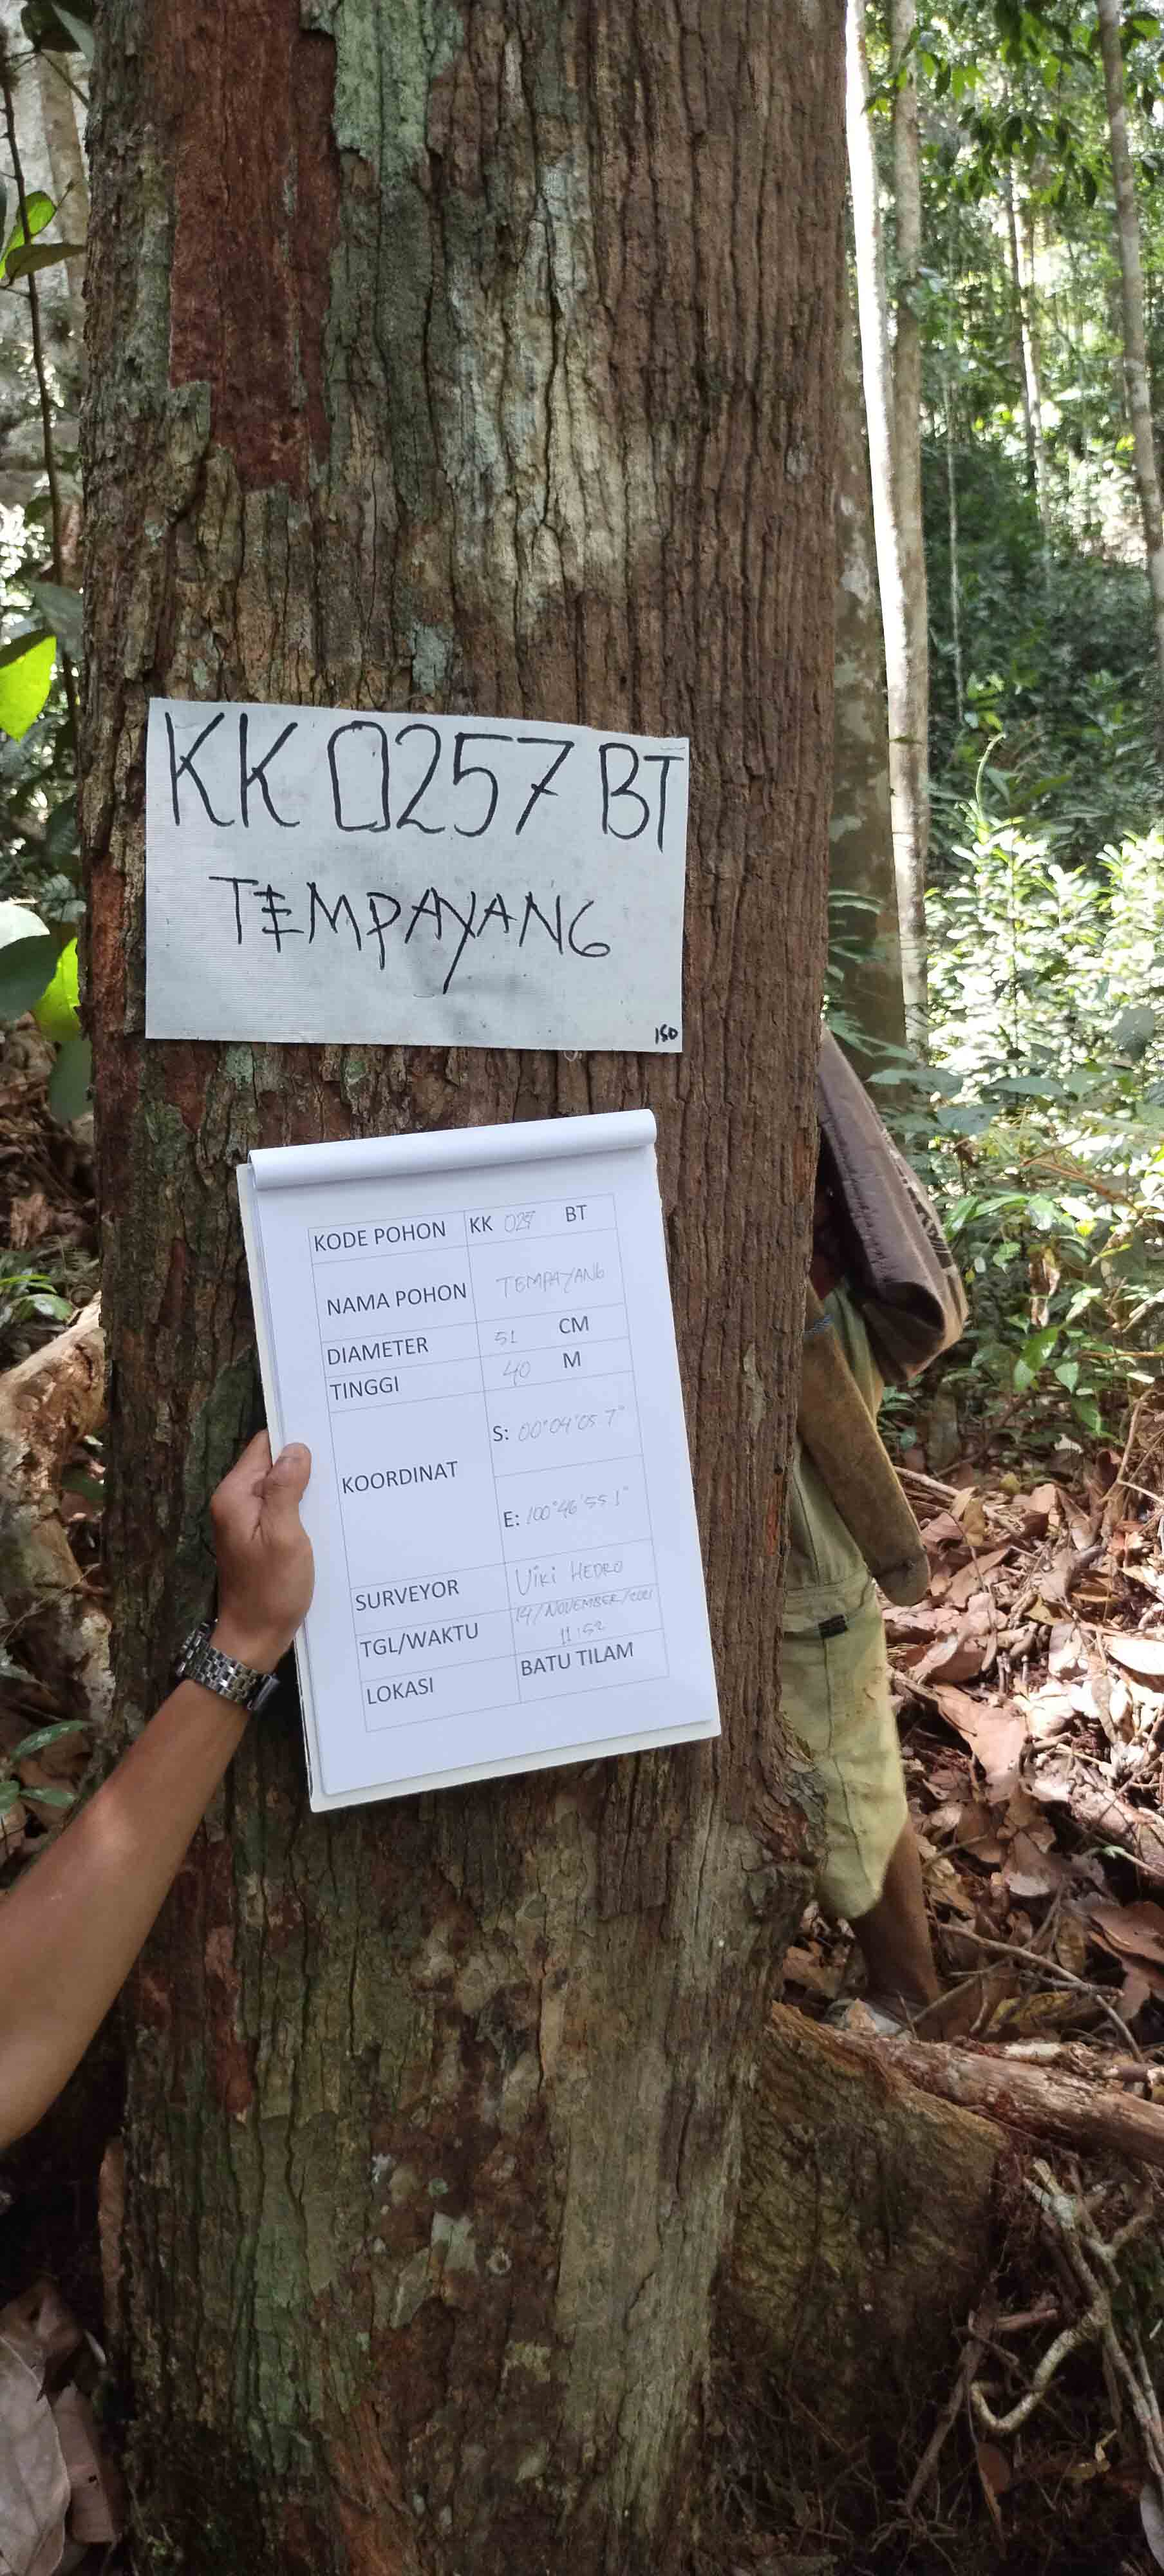 KK 0257 BT
TEMPAYANG
150
KODE POHON KK BT
NAMA POHON TEMPAYANG
DIAMETER 51 CM
TINGGI 40 M
KOORDINAT
S: 00°04'05.7"
E: 100°46'55.1"
SURVEYOR Viki HEDRO
TGL/WAKTU 14/NOVEMBER/2021
11:52
LOKASI BATU TILAM